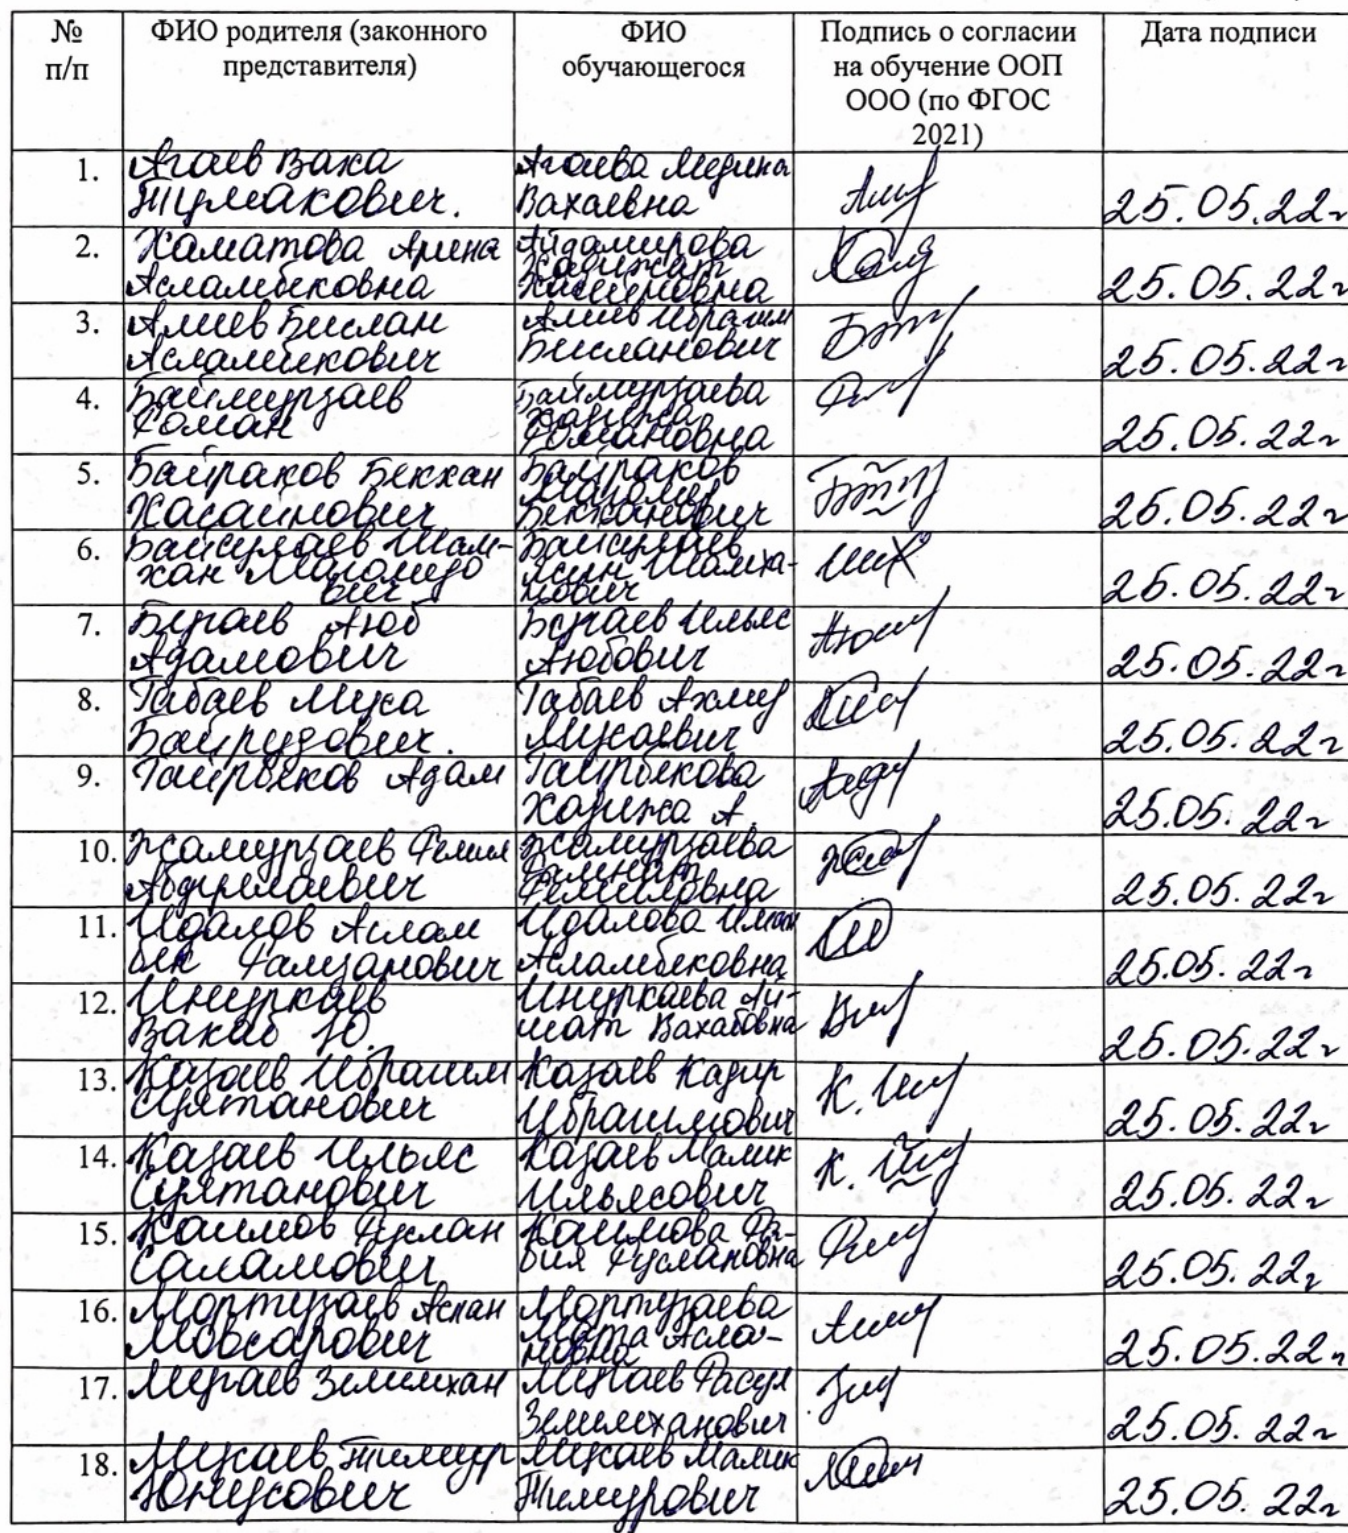 № п/п
ФИО родителя (законного представителя)
ФИО обучающегося
Подпись о согласии на обучение ООП ООО (по ФГОС 2021)
Дата подписи
1.
Агаев Ваха
Тумакович.
Агаева Медина
Вахаевна
25.05.22г
2.
Хаматова Арина
Асламбековна
Айдамирова
Хадижат
25.05.22г
3.
Алиев Бислан
Асламбекович
Алиев Ибрагим
Бисланович
25.05.22г
4.
Баймурзаев
Роман
Баймурзаева
Романовна
25.05.22г
5.
Байраков Бекхан
Хасайнович
Байраков
Магомед
Бекханович
25.05.22г
6.
Байсулаев Шам-
хан Магомедо
вич
Байсулаев
Шамха-
нович
25.05.22г
7.
Бераев Аюб
Адамович
Бераев Ильяс
Аюбович
25.05.22г
8.
Габаев Муса
Байрудович.
Габаев Ахмед
Мусаевич
25.05.22г
9.
Гайрбеков Адам
Гайрбекова
Хадижа А.
25.05.22г
10.
Жамурзаев
Жамурзаева
25.05.22г
11.
Идалов Аслам
бек Рамзанович
Идалова Иман
Асламбековна
25.05.22г
12.
Инуркаев
Вахаб Ю.
Инуркаева Ай-
Вахабовна
25.05.22г
13.
Казаев Ибрагим
Султанович
Казаев Кадир
Ибрагимович
25.05.22г
14.
Казаев Ильяс
Султанович
Казаев Малик
Ильясович
25.05.22г
15.
Каимов Руслан
Саламович
Каимова Ра-
бия Руслановна
25.05.22г
16.
Мортузаев Аслан
Мовсарович
Мортузаева
Асла-
новна
25.05.22г
17.
Зелимхан
Расул
Зелимханович
25.05.22г
18.
Мусаев Тимур
Юнусович
Мусаев Малик
Тимурович
25.05.22г